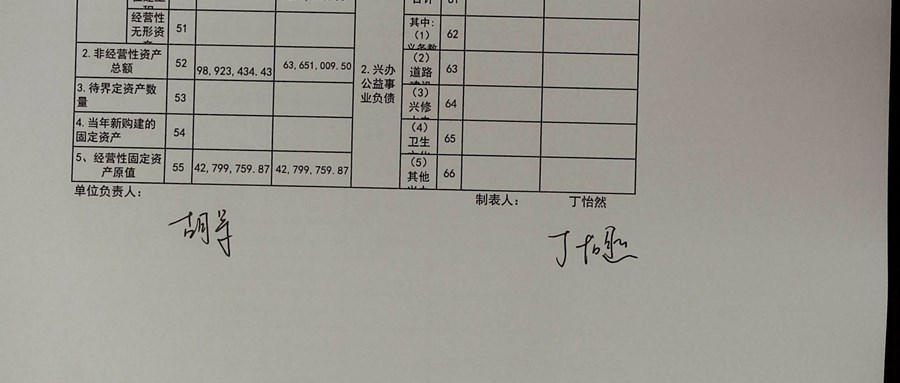 合计 61
经营性
无形资
产 51
其中:
(1)
义务教 62
2. 非经营性资产
总额 52 98,923,434.43 63,651,009.50
2. 兴办
公益事
业负债
(2)
道路
建设 63
3. 待界定资产数
量 53
(3)
兴修 64
4. 当年新购建的
固定资产 54
(4)
卫生
文化 65
5、经营性固定资
产原值 55 42,799,759.87 42,799,759.87
(5)
其他 66
单位负责人:
制表人: 丁怡然
胡
丁怡然